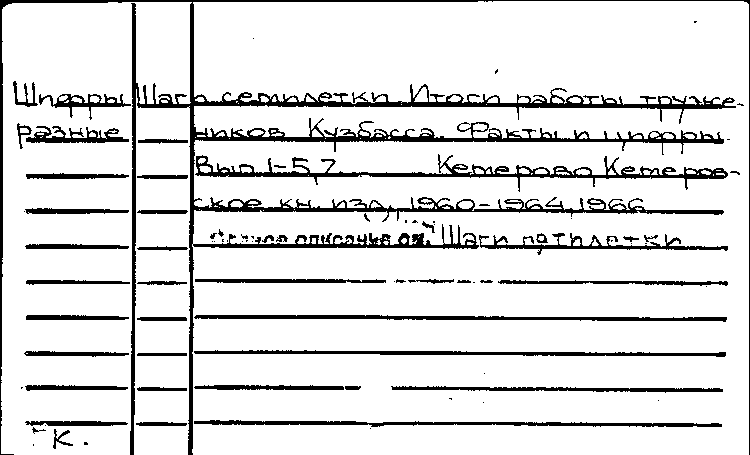 Шифры Шаги семилетки. Итоги работы труже-
разные ников Кузбасса. Факты и цифры.
Вып. 1-5, 7. Кемерово, Кемеров-
ское кн. изд., 1960-1964, 1966
Полное описание см. Шаги пятилетки
ГК.